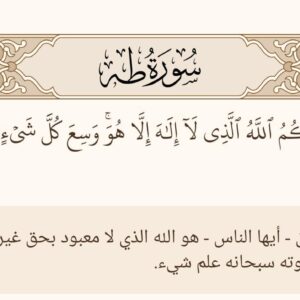 سُورَةُ طه
كُمُ ٱللَّهُ ٱلَّذِى لَآ إِلَـٰهَ إِلَّا هُوَ ۚ وَسِعَ كُلَّ شَىْءٍ
- أيها الناس - هو الله الذي لا معبود بحق غير
وته سبحانه علم شيء.